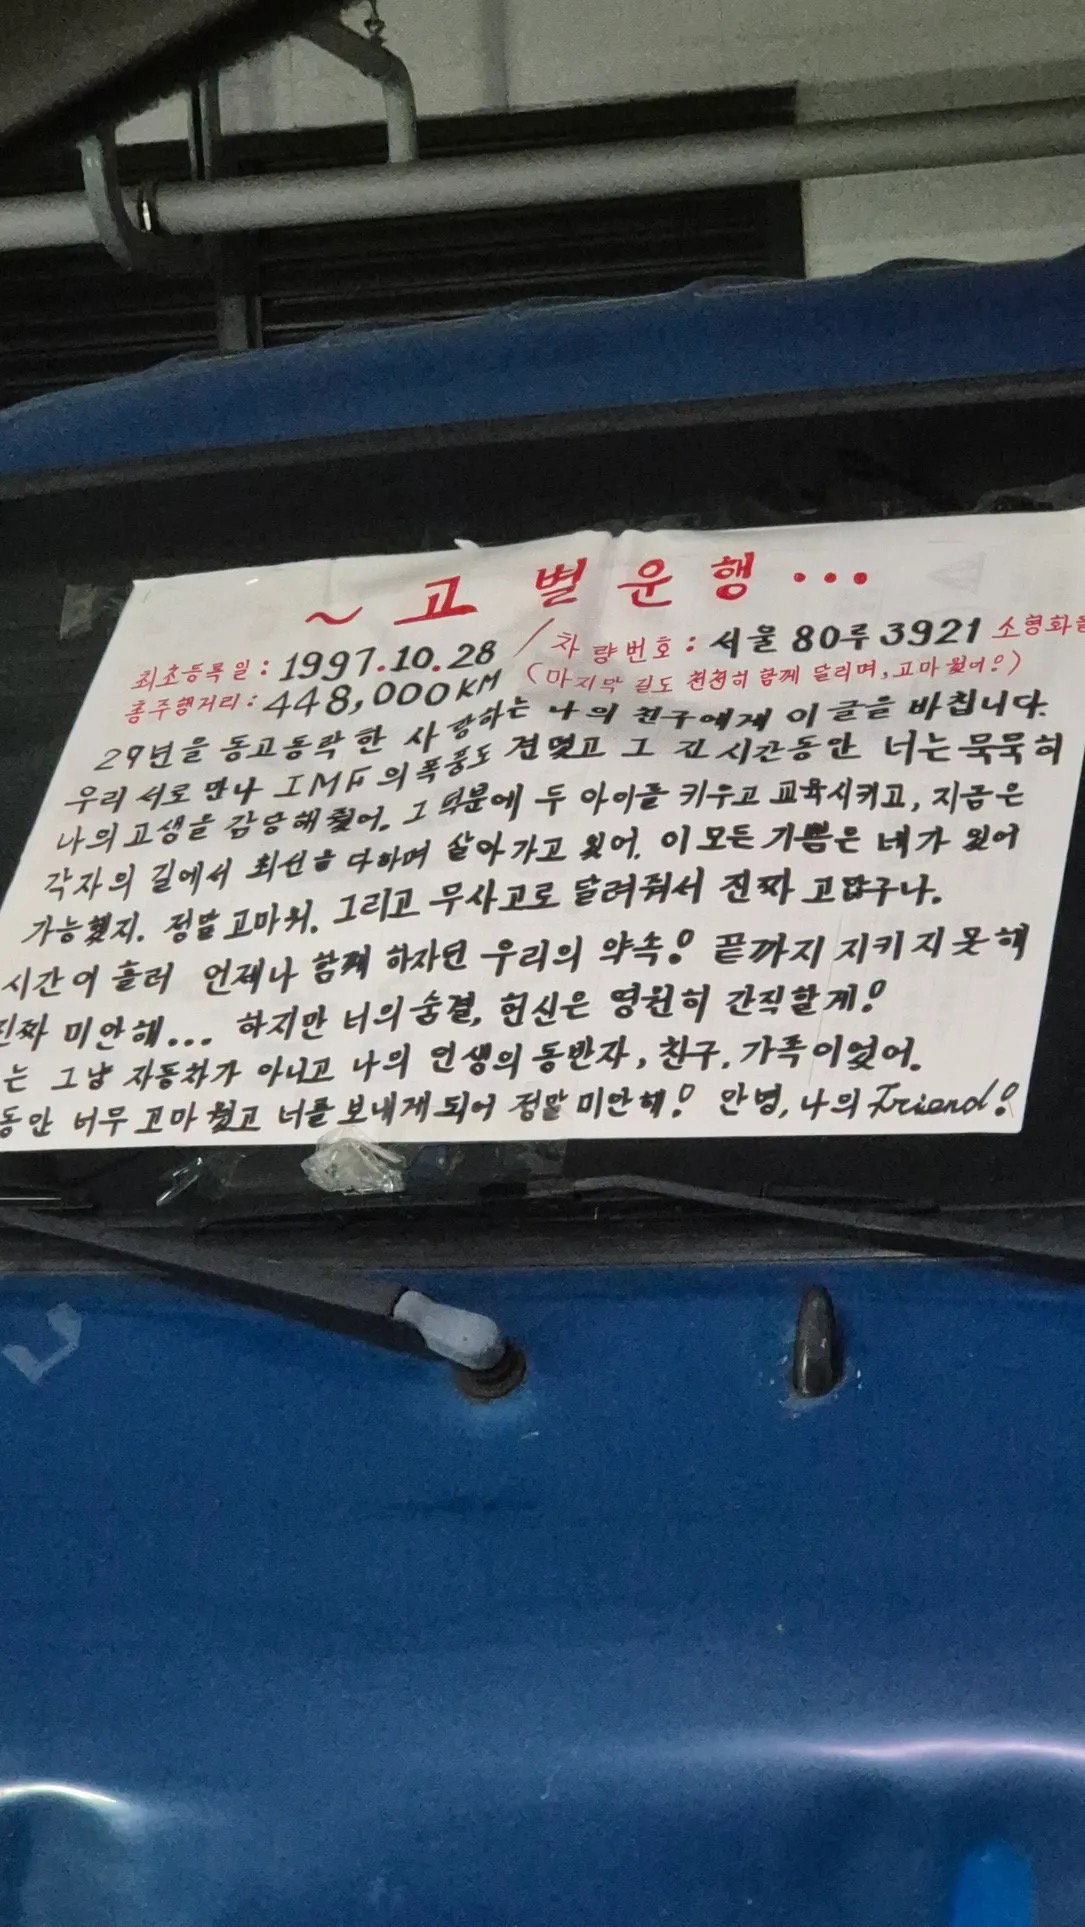 ~ 고 별 운 행 ...
최초등록일 : 1997.10.28 / 차량번호 : 서울 80루 3921 소형화물
총주행거리 : 448,000KM (마지막 길도 천천히 함께 달리며, 고마웠어!)
29년을 동고동락한 사랑하는 나의 친구에게 이 글을 바칩니다.
우리 서로 만나 IMF의 폭풍도 견뎠고 그 긴 시간동안 너는 묵묵히
나의 고생을 감당해줬어. 그 덕분에 두 아이를 키우고 교육시키고, 지금은
각자의 길에서 최선을 다하며 살아가고 있어. 이 모든 기쁨은 네가 있어
가능했지. 정말 고마워. 그리고 무사고로 달려줘서 진짜 고맙구나.
시간이 흘러 언제나 함께 하자던 우리의 약속! 끝까지 지키지 못해
진짜 미안해... 하지만 너의 숨결, 헌신은 영원히 간직할게!
는 그냥 자동차가 아니고 나의 인생의 동반자, 친구, 가족이었어.
동안 너무 고마웠고 너를 보내게 되어 정말 미안해! 안녕, 나의 Friend!